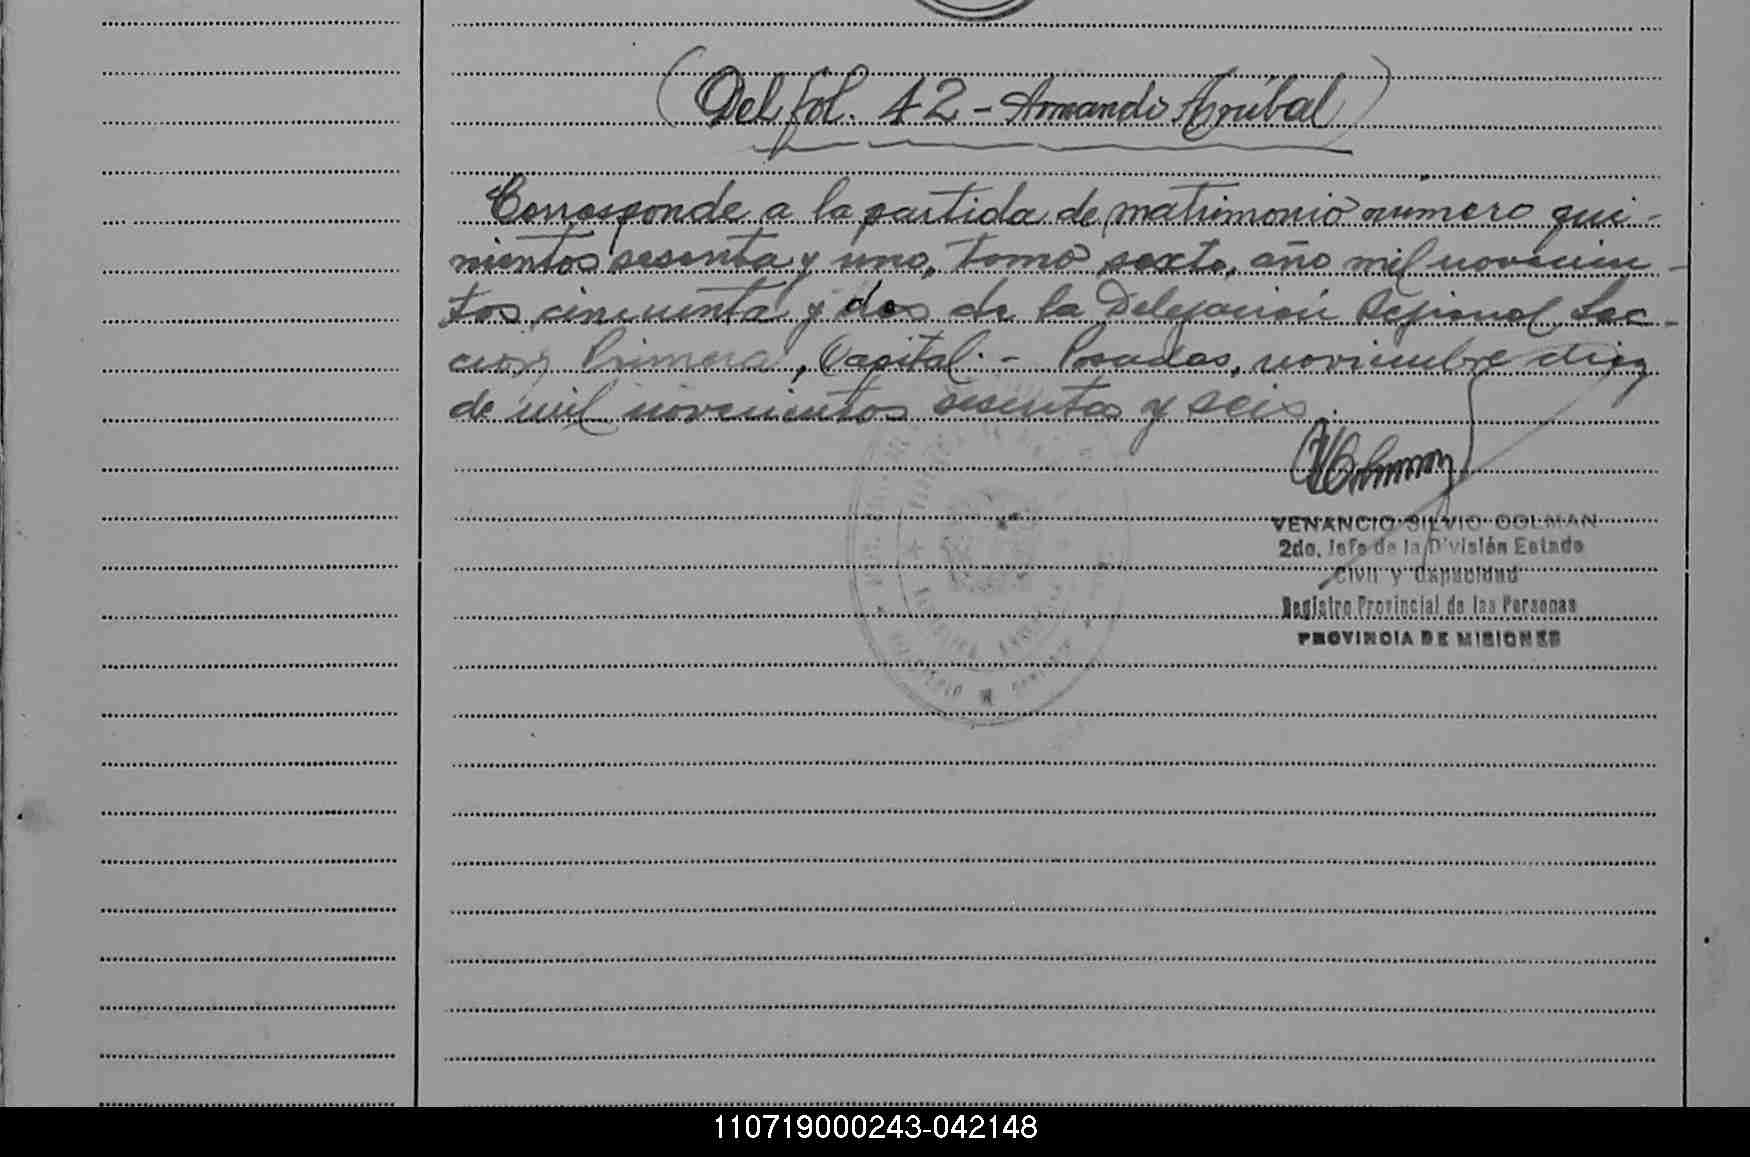 (Del fol. 42 - Armando Aníbal)
Corresponde a la partida de matrimonio número qui-
nientos sesenta y uno, tomo sexto, año mil novecien-
tos cincuenta y dos de la Delegación Regional Sec-
ción Primera, Capital.- Posadas, noviembre diez
de mil novecientos sesenta y seis.
VENANCIO SILVIO COLMAN
2do. Jefe de la División Estado
Civil y Capacidad
Registro Provincial de las Personas
PROVINCIA DE MISIONES
110719000243-042148